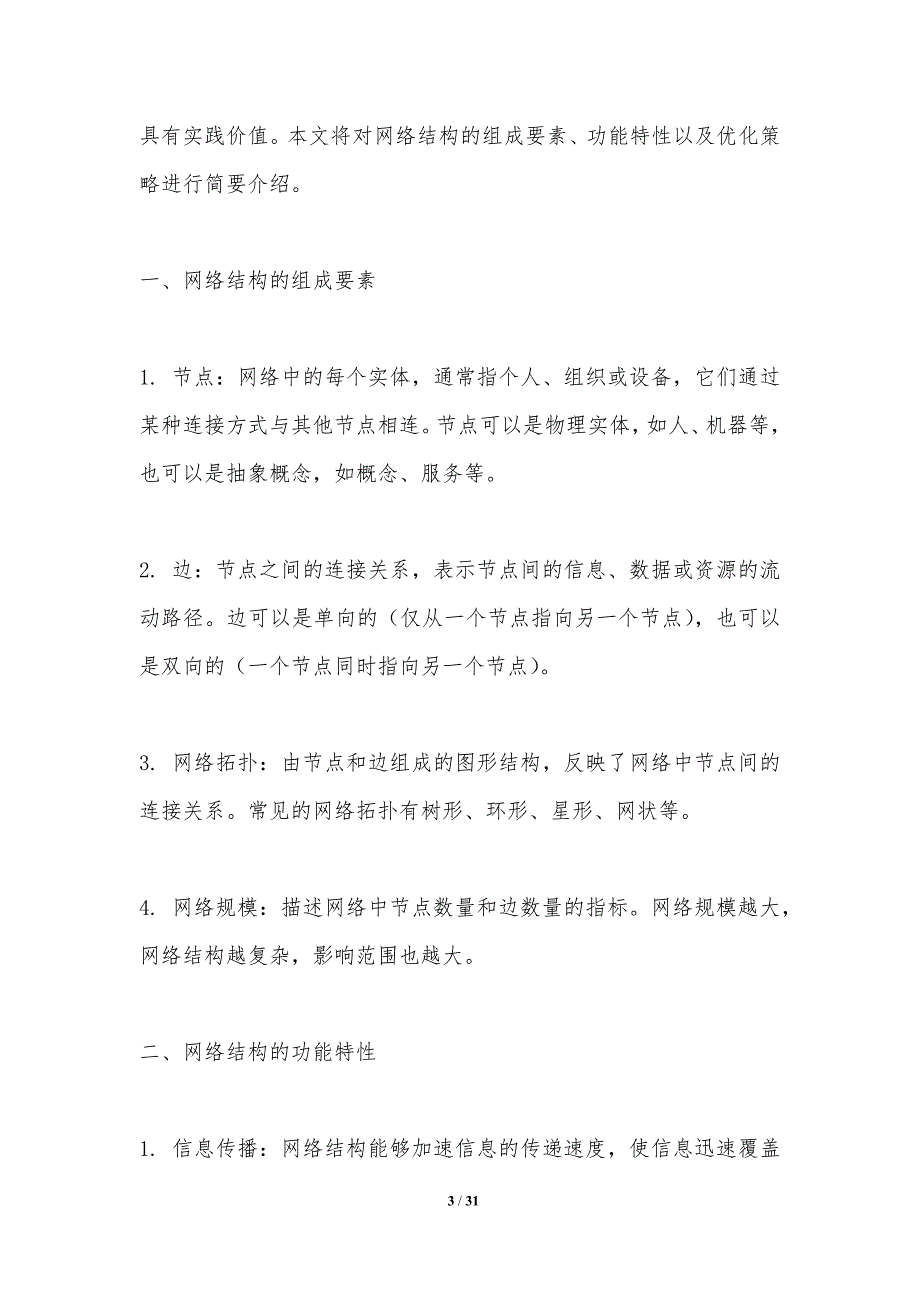 具有实践价值。本文将对网络结构的组成要素、功能特性以及优化策
略进行简要介绍。
一、网络结构的组成要素
1. 节点：网络中的每个实体，通常指个人、组织或设备，它们通过
某种连接方式与其他节点相连。节点可以是物理实体，如人、机器等，
也可以是抽象概念，如概念、服务等。
2. 边：节点之间的连接关系，表示节点间的信息、数据或资源的流
动路径。边可以是单向的（仅从一个节点指向另一个节点），也可以
是双向的（一个节点同时指向另一个节点）。
3. 网络拓扑：由节点和边组成的图形结构，反映了网络中节点间的
连接关系。常见的网络拓扑有树形、环形、星形、网状等。
4. 网络规模：描述网络中节点数量和边数量的指标。网络规模越大，
网络结构越复杂，影响范围也越大。
二、网络结构的功能特性
1. 信息传播：网络结构能够加速信息的传递速度，使信息迅速覆盖
3 / 31